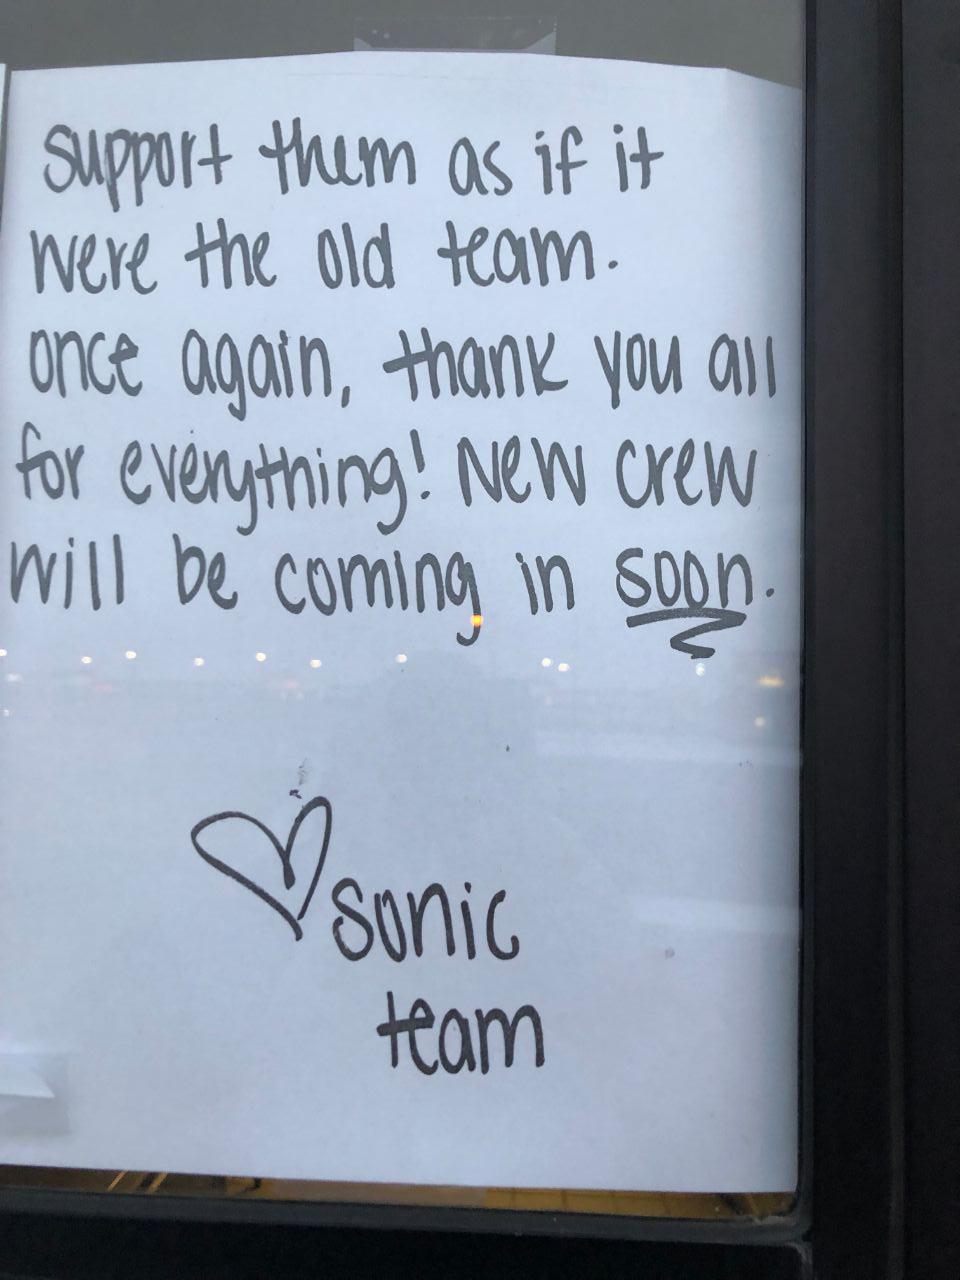 support them as if it
were the old team.
once again, thank you all
for everything! New crew
will be coming in soon.
sonic
team